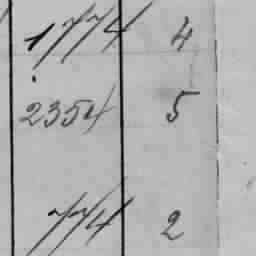 1774 4
2354 5
774 2